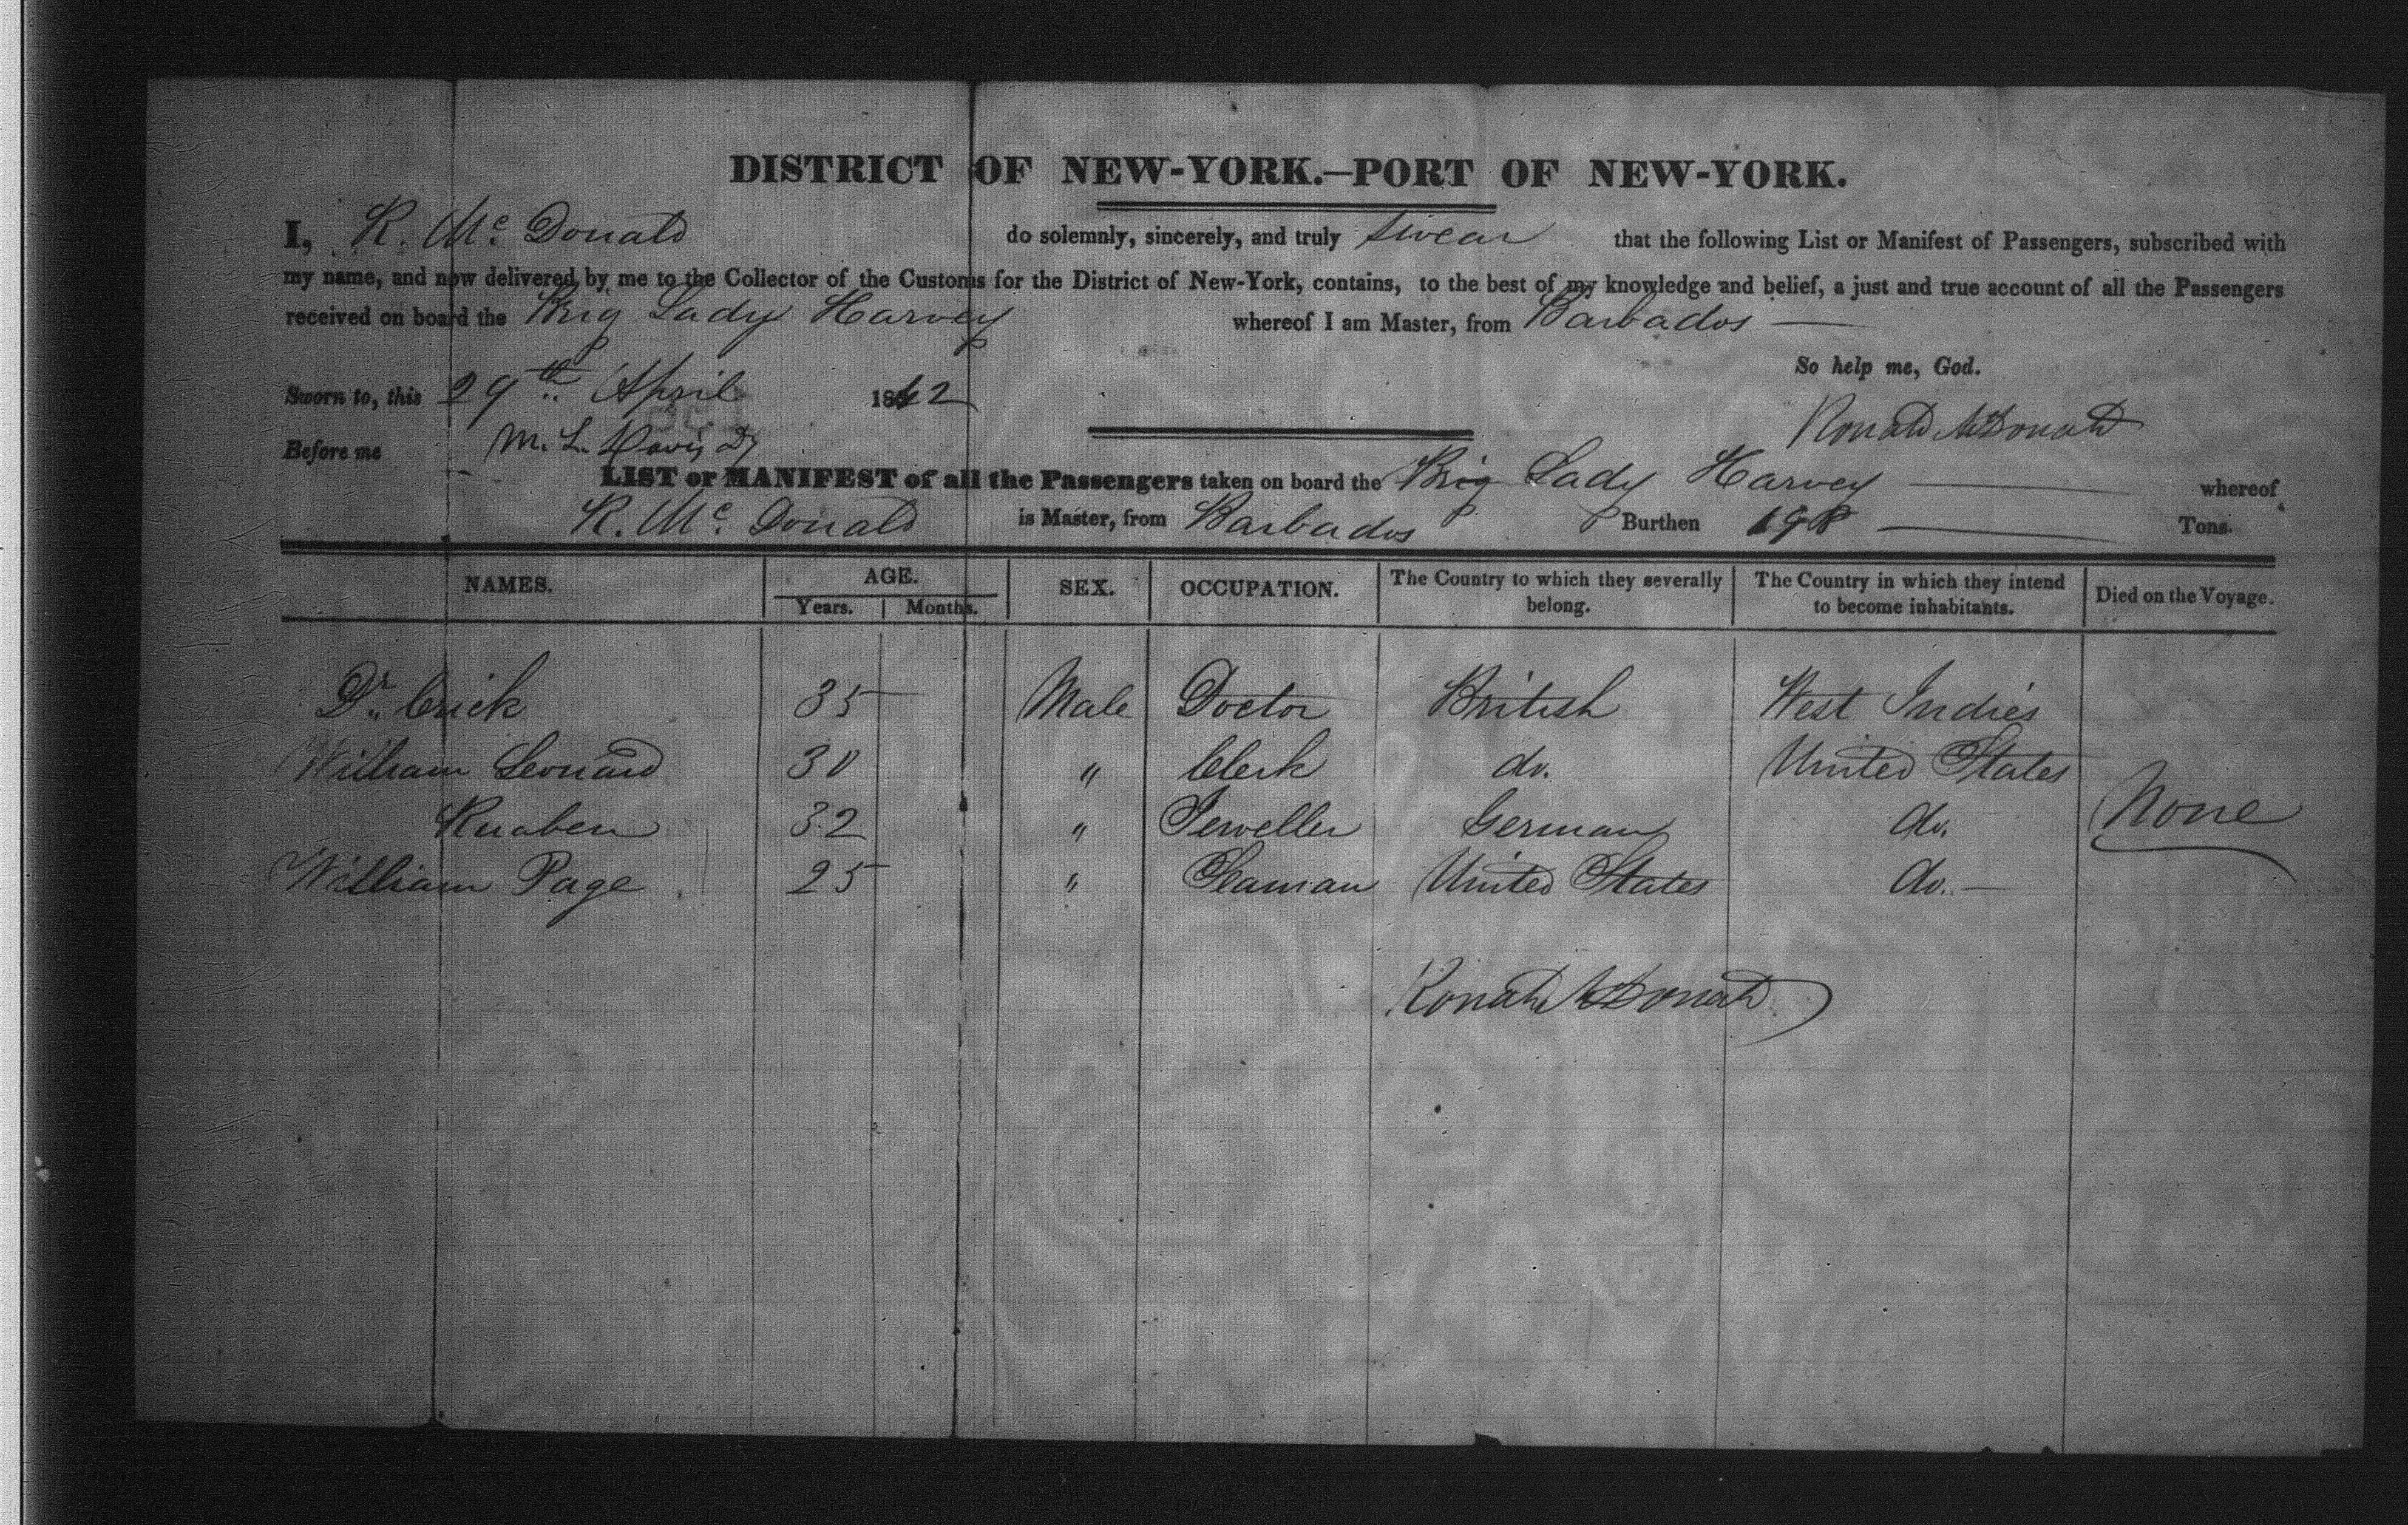 DISTRICT OF NEW-YORK.—PORT OF NEW-YORK.
I, R. Mc Donald do solemnly, sincerely, and truly swear that the following List or Manifest of Passengers, subscribed with
my name, and now delivered by me to the Collector of the Customs for the District of New-York, contains, to the best of my knowledge and belief, a just and true account of all the Passengers
received on board the Brig Lady Harvey whereof I am Master, from Barbados
So help me, God.
Sworn to, this 29th April 1862
Ronald McDonald
Before me M. L. Davis
LIST or MANIFEST of all the Passengers taken on board the Brig Lady Harvey whereof
R. Mc Donald is Master, from Barbados Burthen 198 Tons.
NAMES. AGE. Years. Months. SEX. OCCUPATION. The Country to which they severally belong. The Country in which they intend to become inhabitants. Died on the Voyage.
Dr. Crick 35 Male Doctor British West Indies
William Leonard 30 " Clerk do. United States
Knaben 32 " Jeweller Germany do. None
William Page 25 " Seaman United States do.
Ronald McDonald